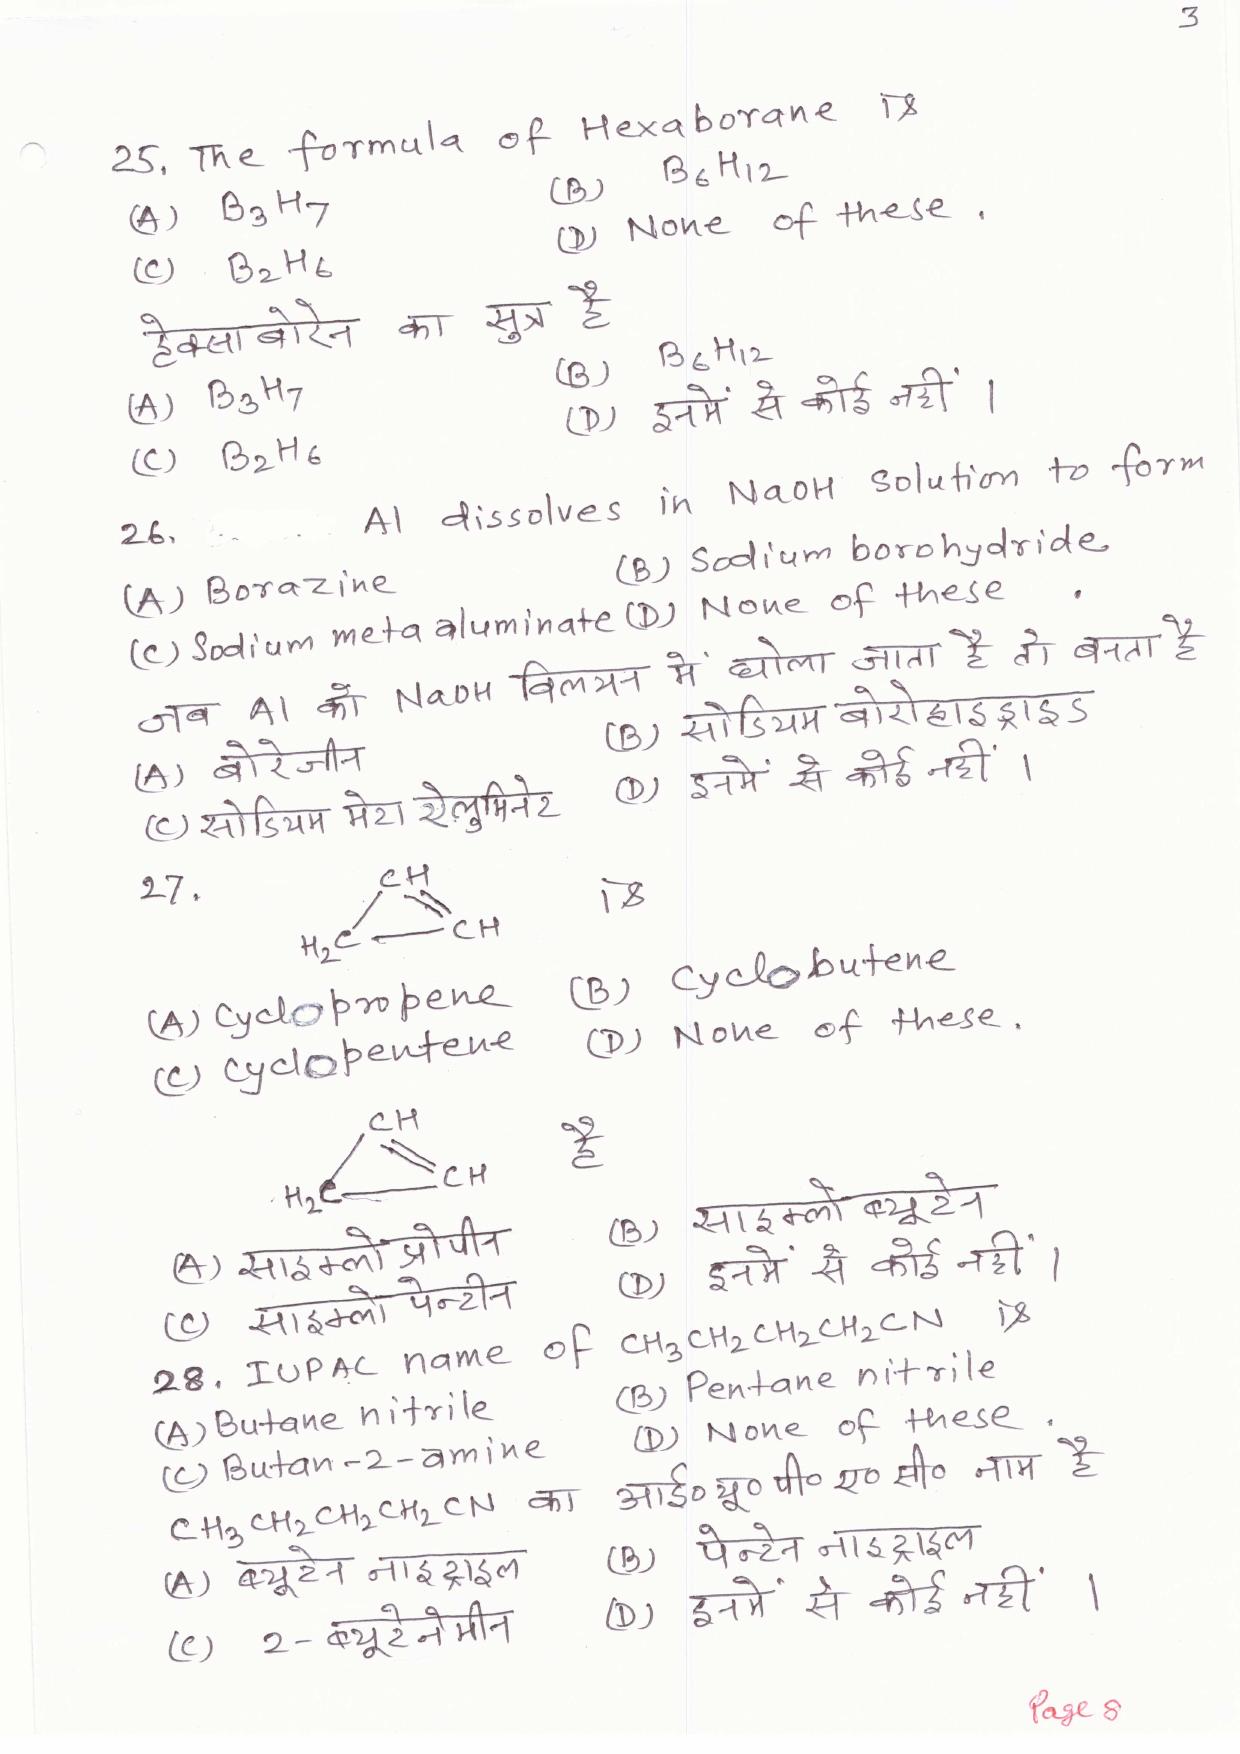 3
25. The formula of Hexaborane is
(A) B₃H₇ (B) B₆H₁₂
(C) B₂H₆ (D) None of these.
हेक्साबोरेन का सुत्र है
(A) B₃H₇ (B) B₆H₁₂
(C) B₂H₆ (D) इनमें से कोई नहीं ।
26. Al dissolves in NaOH solution to form
(A) Borazine (B) Sodium borohydride
(C) Sodium meta aluminate (D) None of these .
जब Al को NaOH विलयन में घोला जाता है तो बनता है
(A) बोरेजीन (B) सोडियम बोरोहाइड्राइड
(C) सोडियम मेटा ऐलुमिनेट (D) इनमें से कोई नहीं ।
27. CH is
H₂C CH
(A) Cyclopropene (B) Cyclobutene
(C) Cyclopentene (D) None of these.
CH है
H₂C CH
(A) साइक्लो प्रोपीन (B) साइक्लो ब्यूटेन
(C) साइक्लो पेन्टीन (D) इनमें से कोई नहीं ।
28. IUPAC name of CH₃CH₂CH₂CH₂CN is
(A) Butane nitrile (B) Pentane nitrile
(C) Butan-2-amine (D) None of these.
CH₃CH₂CH₂CH₂CN का आई० यू० पी० ए० सी० नाम है
(A) ब्यूटेन नाइट्राइल (B) पेन्टेन नाइट्राइल
(C) 2-ब्यूटेनेमीन (D) इनमें से कोई नहीं ।
Page 8